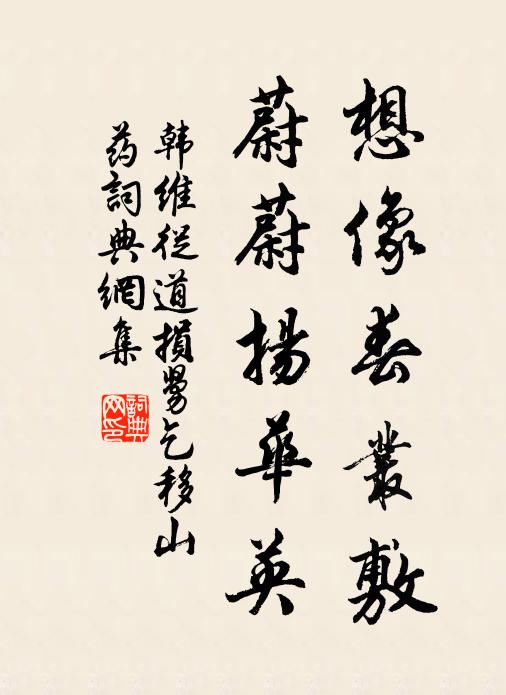 想像春叢敷
蔚蔚揚華英
韩維從道損舅乞移山
药詞典網集
詞典网印